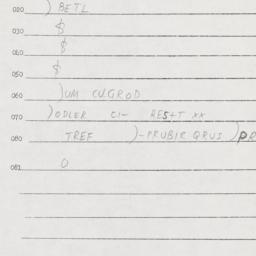 020 ) BETL
030 $
040 $
050 $
060 )UM CU.GROD
070 )ODLER CI- RES+T XX
080 TREF )-PRUBIR QRUS )PR
081 O